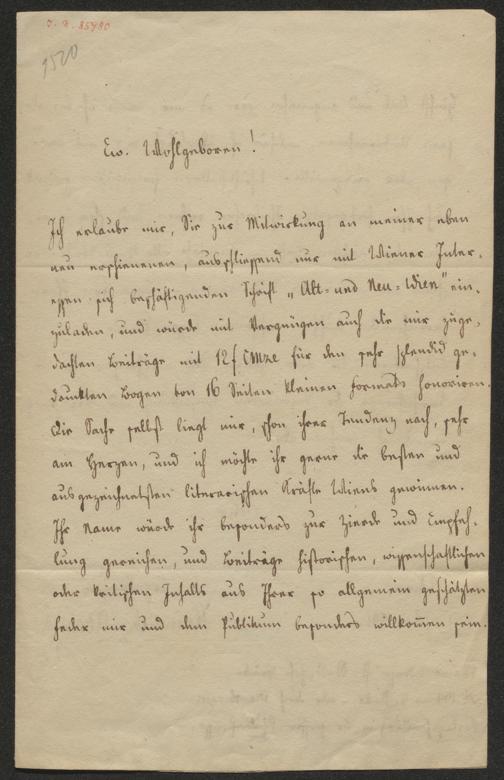 J. N. 85980
1520
Ew. Wohlgeboren!
Ich erlaube mir, Sie zur Mitwirkung an meiner eben
neu erschienenen, ausschliessend nur mit Wiener Inter-
essen sich beschäftigenden Schrift „Alt- und Neu-Wien" ein-
zuladen, und würde mit Vergnügen auch die mir zuge-
dachten Beiträge mit 12 f CMze für den sehr splendid ge-
druckten Bogen von 16 Seiten kleinen Formats honoriren.
Die Sache selbst liegt mir, schon ihrer Tendenz nach, sehr
am Herzen, und ich möchte ihr gerne die besten und
ausgezeichnetsten literarischen Kräfte Wiens gewinnen.
Ihr Name würde ihr besonders zur Zierde und Empfeh-
lung gereichen, und Beiträge historischen, wissenschaftlichen
oder kritischen Inhalts aus Ihrer so allgemein geschätzten
Feder mir und dem Publikum besonders willkom̅en sein.